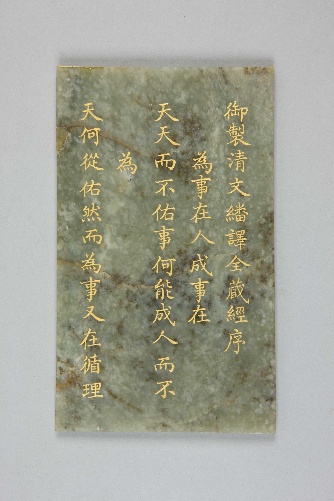 御製清文繙譯全藏經序
為事在人成事在
天天而不佑事何能成人而不
為
天何從佑然而為事又在循理